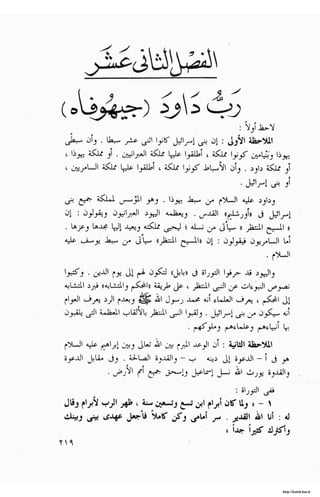 الفصل الثاني عشر
ربُّ داود (جيهوفاه)
لاحظ أولاً :
الملاحظة الأولى : إن بنى إسرائيل كانوا اثنى عشر سبطا . وأن سبطى
يهوذا وبنيامين كونوا مملكة ، أطلقوا عليها مملكة العبرانيين . أو . مملكة يهوذا ،
أو مملكة داود . وأن الأسباط كونوا مملكة ، أطلقوا عليها مملكة السامريين ،
أو بنى إسرائيل .
وداود عليه السلام هو من سبط يهوذا . وهو المؤسس لمملكة جميع بنى
إسرائيل فى «أورشليم» القدس . ويعظمه اليهود العبرانيون ويقولون : إن
« المسيح » المنتظر « سيأتى من نسله » ليحيى مملكته ويعيد إليها مجدها وعزها .
أما السامريون فيقولون : إن «المسيح المنتظر» سيأتى من سبط يوسف عليه
السلام .
واليهود قد حرفوا التوراة فى «بابل» لتكون لهم إلى يوم الدين . وكتبوا
نصوص النبوءات عن النبى المنتظر ، على طريقة «المحكم والمتشابه» فبرد المتشابه
إلى المحكم ، يعرف العلماء أنه محمد رسول الله ﷺ وبعدم الرد يعرف العوام
أنه سيكون من بنى إسرائيل . ولقبوا النبى المنتظر بالألقاب المعظمة التى يلقبون
بها أنبياءهم وعلماءهم وملوكهم .
الملاحظة الثانية : أن الوعد المبرم بين الله تعالى وبين إبراهيم عليه السلام
هو فى أ – الدعوة إلى دينه ب – والقدوة الصالحة . وفى مقابل الدعوة
والقدوة يورث الله نسل إسماعيل وإسحق جميع أمم الأرض .
ففى التوراة :
١ – « ولما كان أبرام ابن تسع وتسعين سنة ، ظهر الرب لأبرام وقال
له : أنا الله القدير . سر أمامى وكن كاملا فأجعل عهدى بينى وبينك
وأكثرك كثيراً جداً »
٢١٩